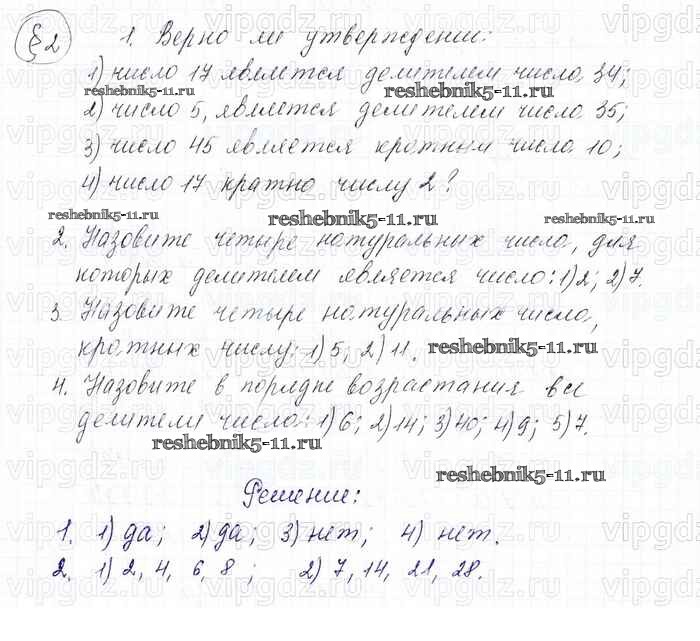 §2 1. Верно ли утверждении:
1) число 17 является делителем числа 34;
reshebnik5-11.ru reshebnik5-11.ru
2) число 5, является делителем числа 35;
3) число 45 является кратным числа 10;
4) число 17 кратно числу 2?
reshebnik5-11.ru reshebnik5-11.ru reshebnik5-11.ru
2. Назовите четыре натуральных числа, для
которых делителем является число: 1) 2; 2) 7.
3. Назовите четыре натуральных числа,
кратных числу: 1) 5; 2) 11. reshebnik5-11.ru
4. Назовите в порядке возрастания все
делители числа: 1) 6; 2) 14; 3) 40; 4) 9; 5) 7.
reshebnik5-11.ru
reshebnik5-11.ru
Решение:
1. 1) да; 2) да; 3) нет; 4) нет.
2. 1) 2, 4, 6, 8; 2) 7, 14, 21, 28.